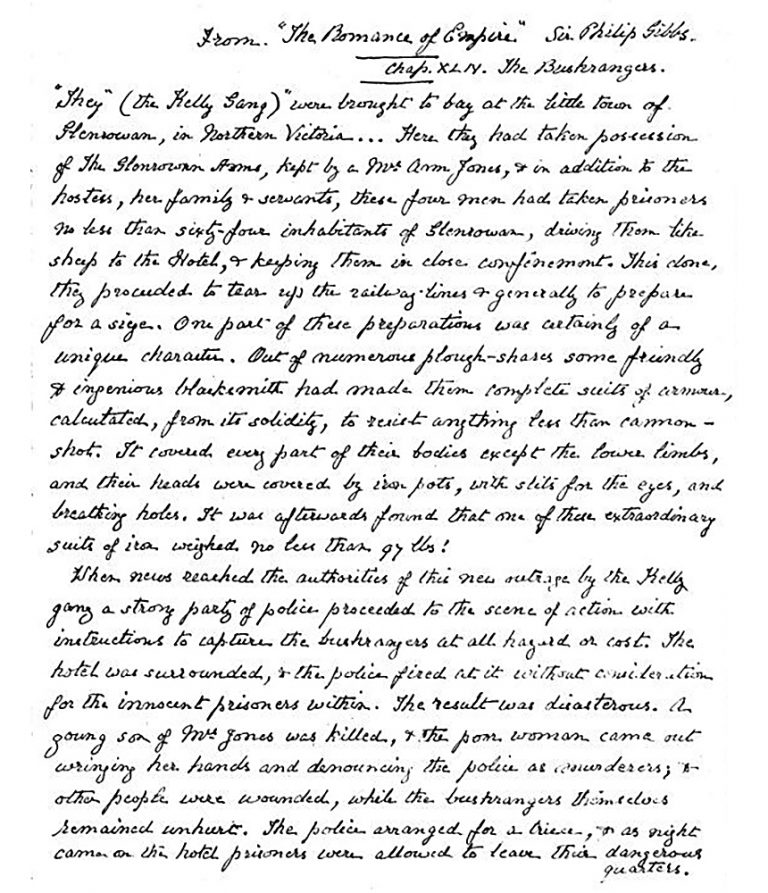 From. "The Romance of Empire" Sir Philip Gibbs.
Chap. XLIV. The Bushrangers.
"They" (the Kelly Gang) "were brought to bay at the little town of
Glenrowan, in Northern Victoria... Here they had taken possession
of The Glenrowan Arms, kept by a Mrs Ann Jones, & in addition to the
hostess, her family & servants, these four men had taken prisoners
no less than sixty-four inhabitants of Glenrowan, driving them like
sheep to the Hotel, & keeping them in close confinement. This done,
they proceeded to tear up the railway-lines & generally to prepare
for a siege. One part of these preparations was certainly of a
unique character. Out of numerous plough-shares some friendly
& ingenious blacksmith had made them complete suits of armour,
calculated, from its solidity, to resist anything less than cannon-
shot. It covered every part of their bodies except the lower limbs,
and their heads were covered by iron pots, with slits for the eyes, and
breathing holes. It was afterwards found that one of these extraordinary
suits of iron weighed no less than 97 lbs!
When news reached the authorities of this new outrage by the Kelly
gang a strong party of police proceeded to the scene of action with
instructions to capture the bushrangers at all hazard or cost. The
hotel was surrounded, & the police fired at it without consideration
for the innocent prisoners within. The result was disasterous. A
young son of Mrs Jones was killed, & the poor woman came out
wringing her hands and denouncing the police as murderers; &
other people were wounded, while the bushrangers themselves
remained unhurt. The police arranged for a truce, & as night
came on the hotel prisoners were allowed to leave their dangerous
quarters.